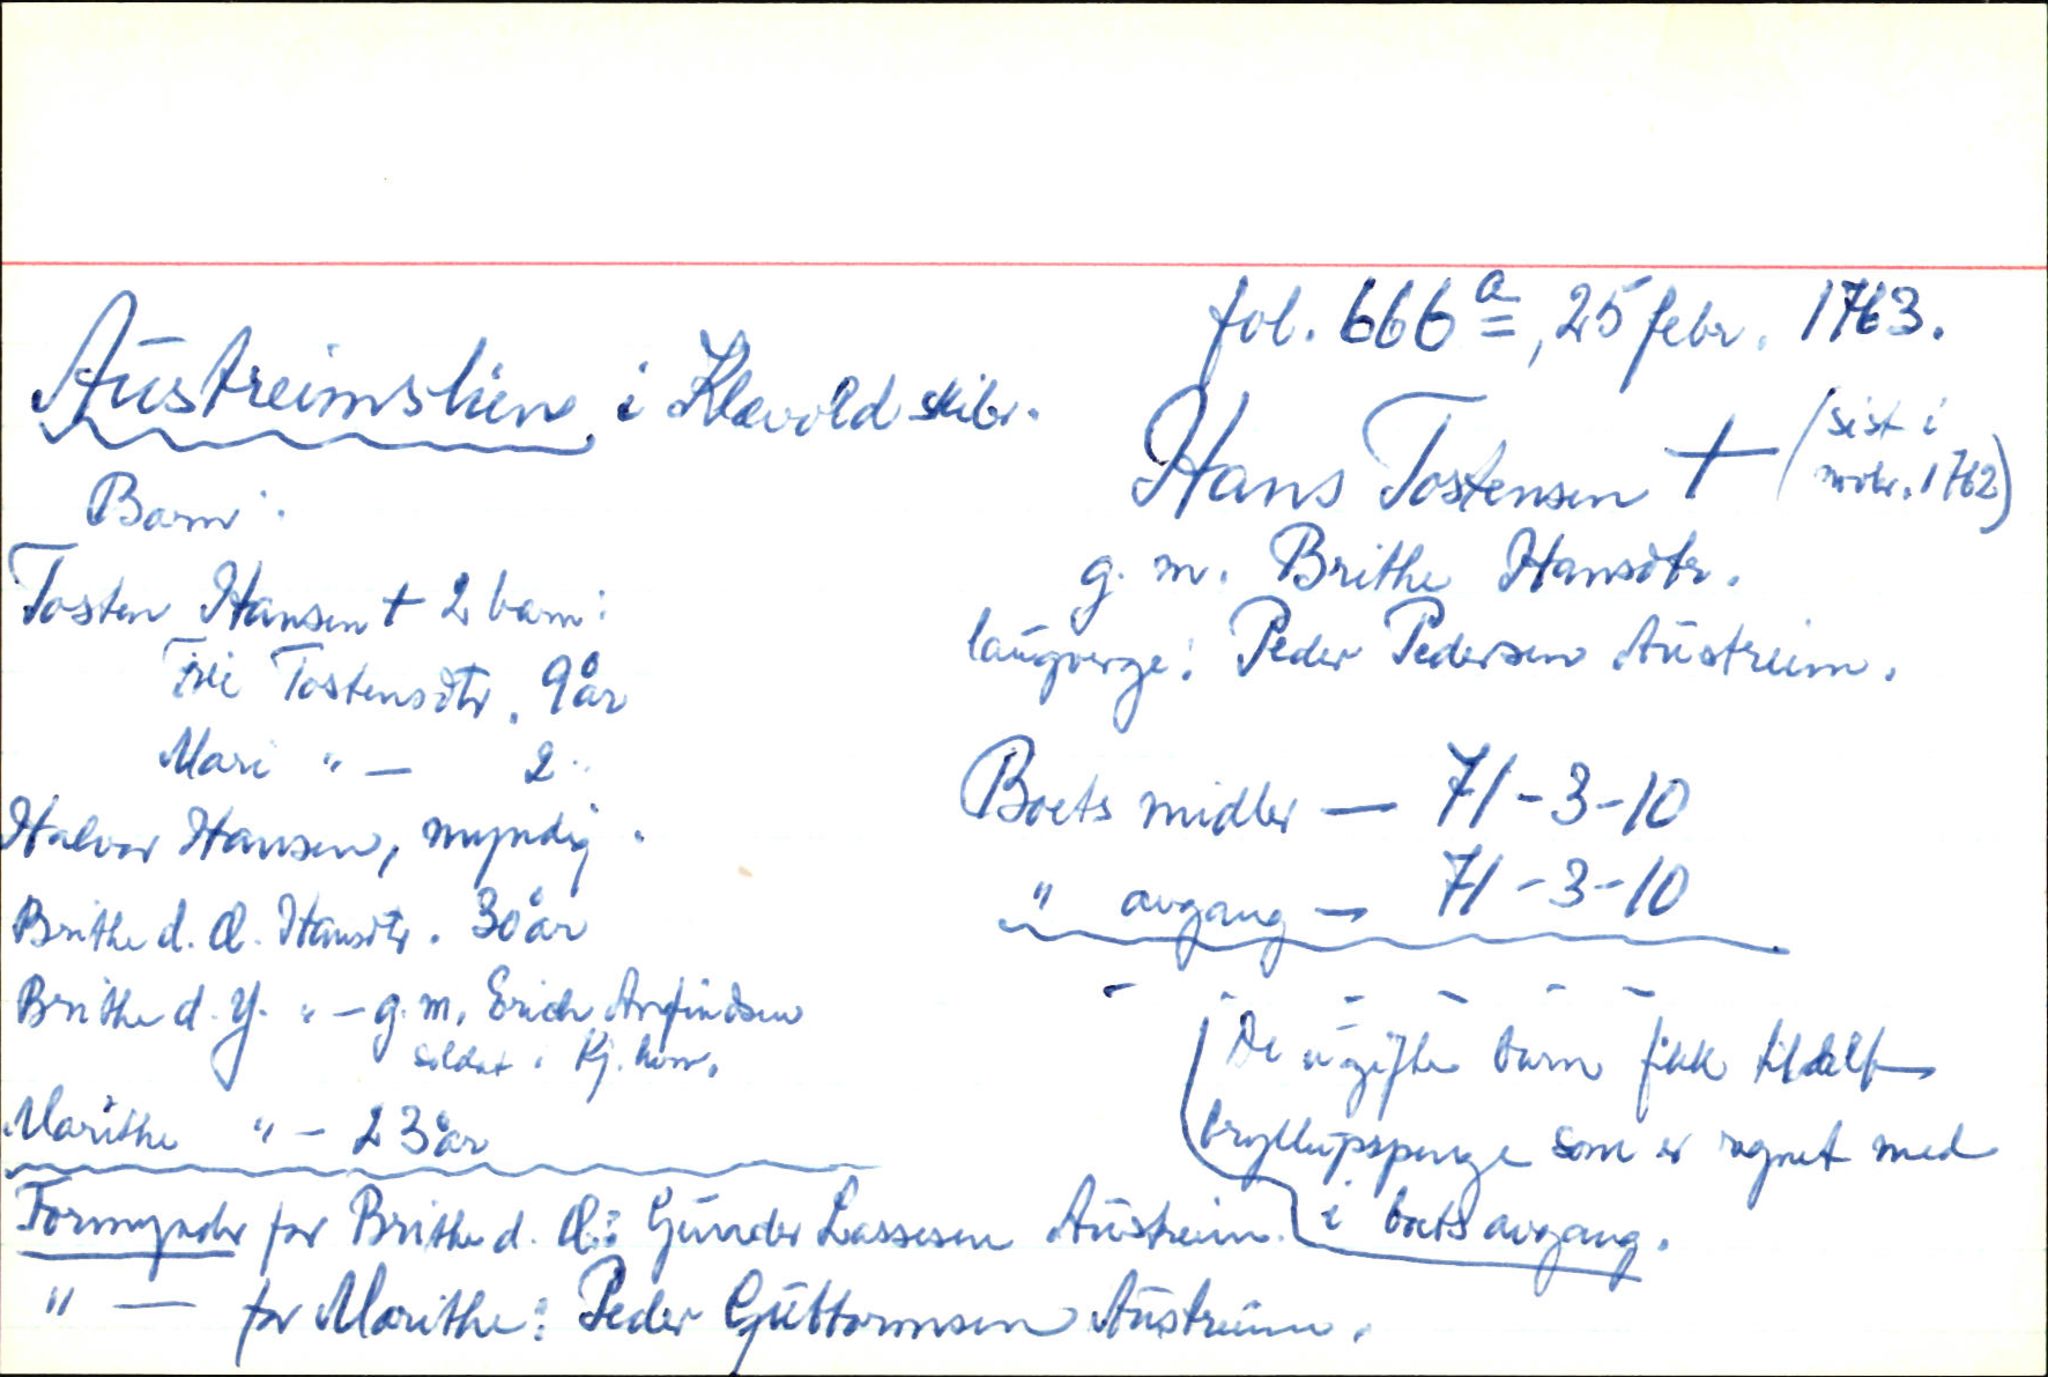 fol. 666 a, 25 febr. 1763.
Austreimslien i Klævold skibr.
Hans Tostensen + (sist i
novbr. 1762)
g. m. Brithe Hansdtr.
laugverge: Peder Pedersen Austreim.
Boets midler — 71-3-10
" avgang — 71-3-10
De ugifte barn fikk tildelt
bryllupspenge som er regnet med
i boets avgang.
Barn:
Tosten Hansen + 2 barn:
Tostensdtr. 9 år
Mari " — 2 "
Halvor Hansen, myndig.
Brithe d. æ. Hansdtr. 30 år
Brithe d. y. " — g. m. Erich Arfindsen
soldat i Kj.havn.
Marithe " — 23 år
Formynder for Brithe d. æ.: Gunder Lassesen Austreim.
" — for Marithe: Peder Guttormsen Austreim.